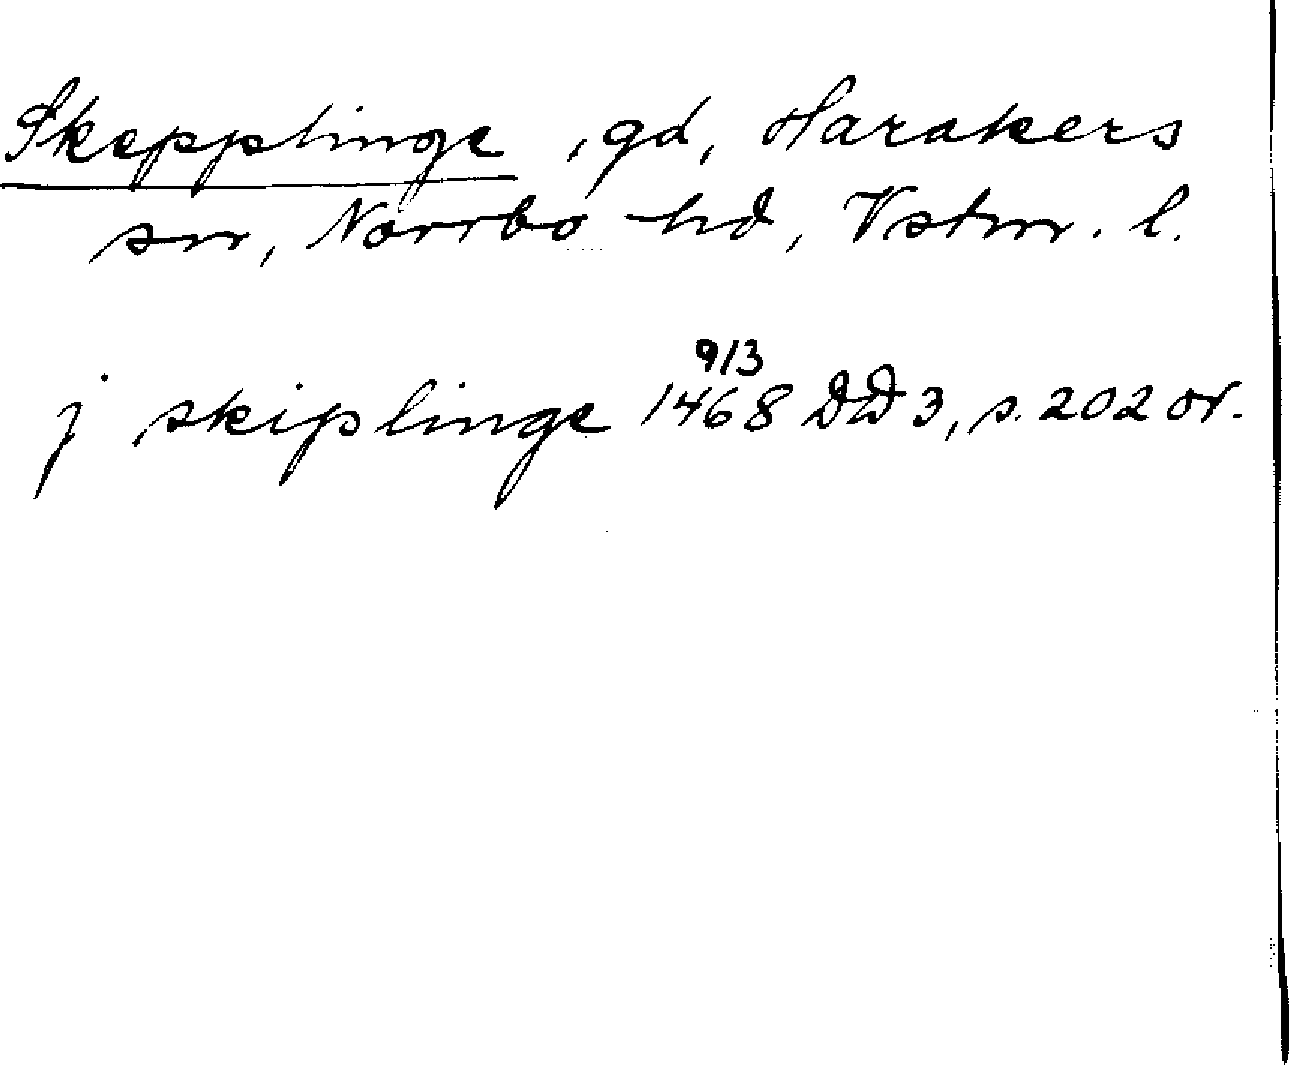 Skepplinge, gd, Harakers
sn, Norrbo hd, Vstm. l.
j skiplinge 1468 9/3 DD 3, s. 202 or.